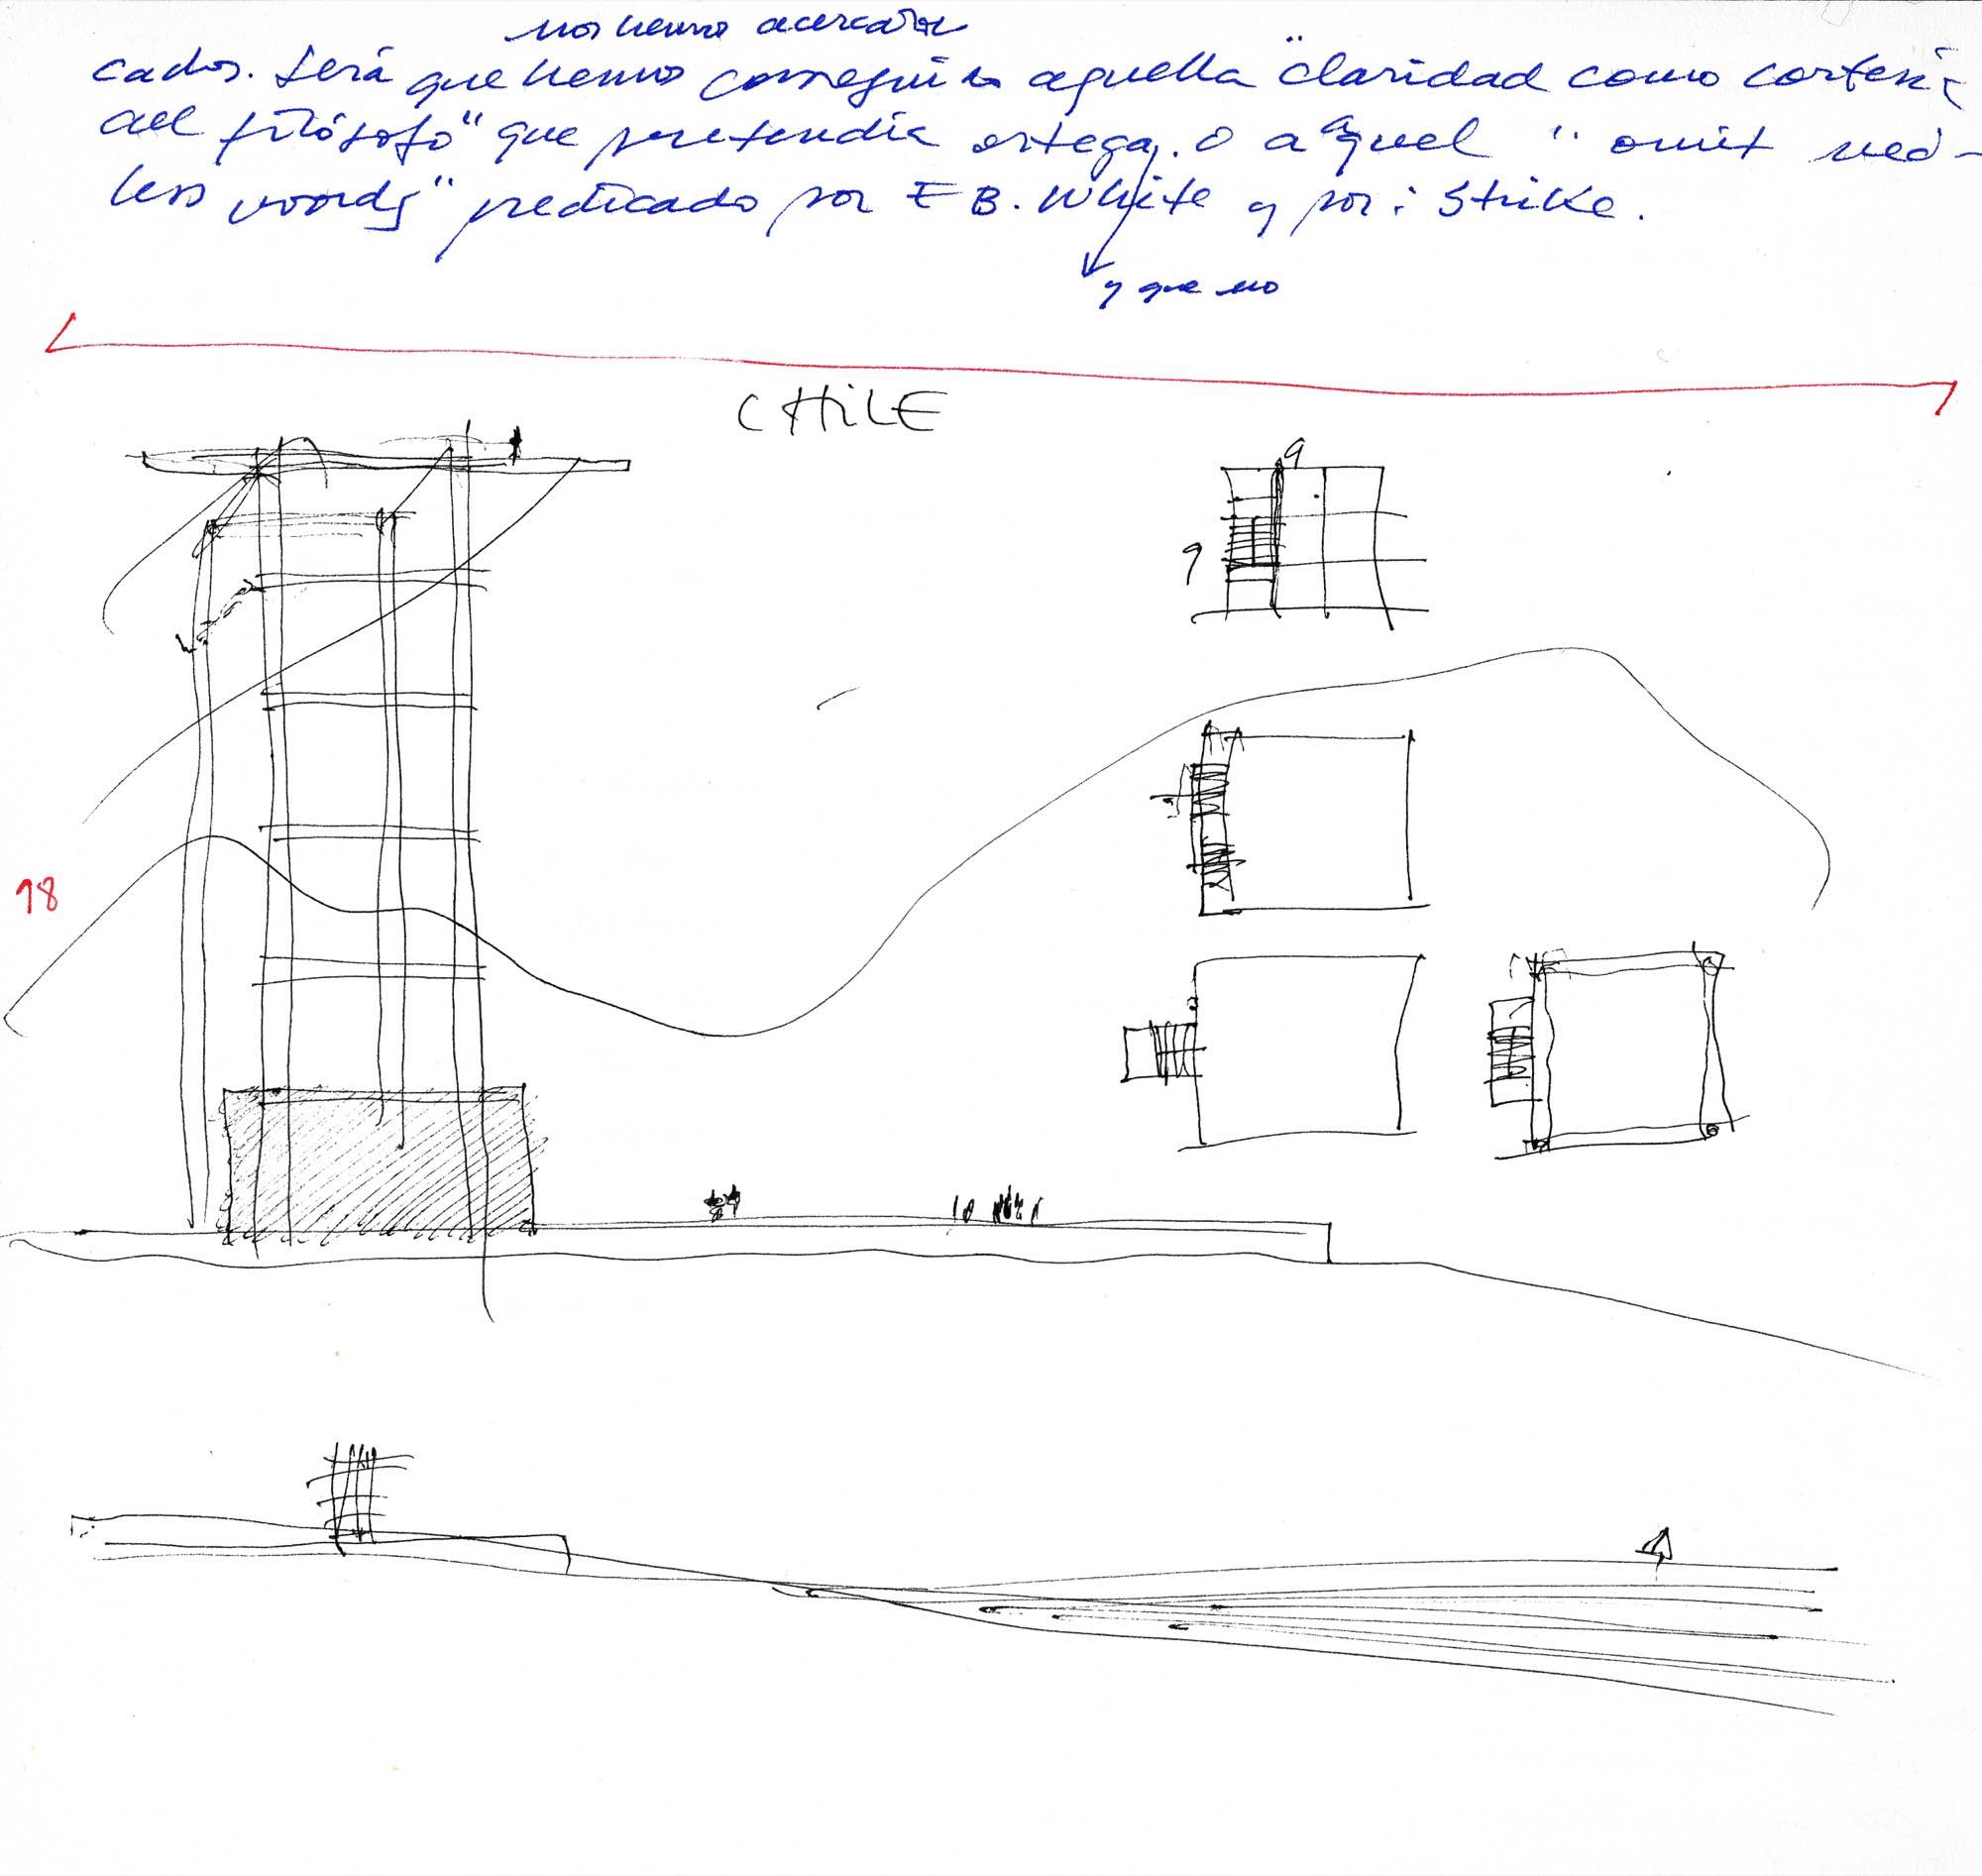 nos hemos acercado
cados. Será que hemos conseguido aquella "claridad como cortesía
del filósofo" que pretendía ortega. o a aquel "omit need-
less words" predicado por E B. White y por: Strike.
y que no
CHiLE
9
9
18